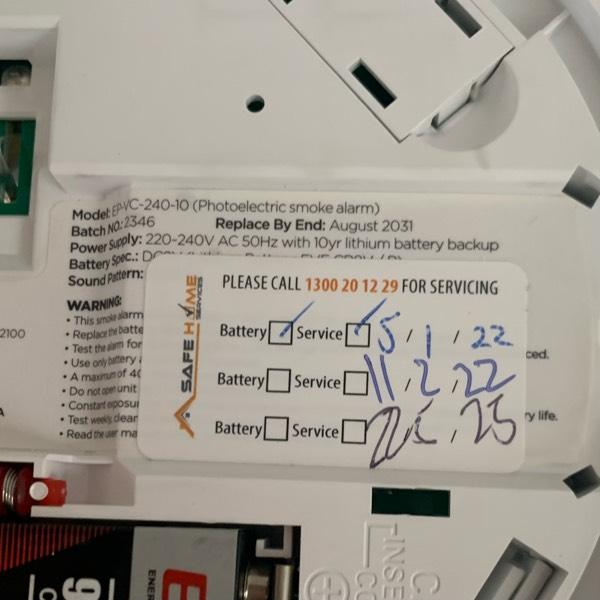 Model: EP-VC-240-10 (Photoelectric smoke alarm)
Batch NO.: 2346 Replace By End: August 2031
Power Supply: 220-240V AC 50Hz with 10yr lithium battery backup
Battery Spec.:
Sound Pattern:
WARNING:
• This smoke alarm
• Replace the batte
• Test the alarm for
• Use only battery
• A maximum of 40
• Do not open unit
• Constant exposur
• Test weekly, clean
• Read the user ma
2100
ced.
ry life.
SAFE HOME
SERVICES
PLEASE CALL 1300 20 12 29 FOR SERVICING
Battery Service 5 / 1 / 22
Battery Service 11 / 2 / 22
Battery Service / 25
ENER
9
INSE